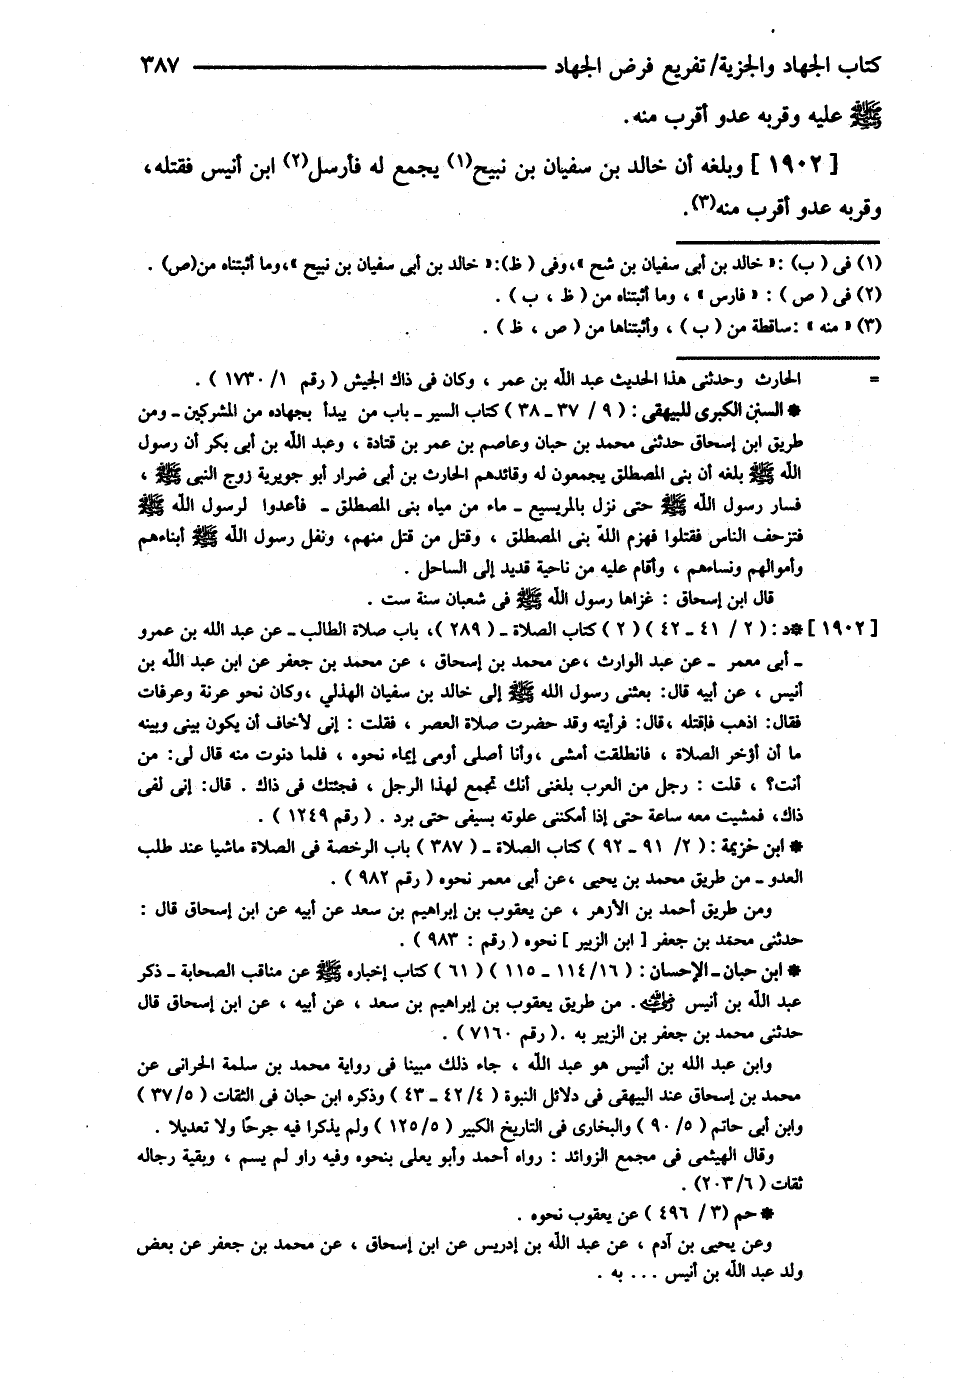 كتاب الجهاد والجزية/ تفريع فرض الجهاد ــــــــ ٣٨٧
ﷺ عليه وقربه عدو أقرب منه.
[ ١٩٠٢ ] وبلغه أن خالد بن سفيان بن نبيح(١) يجمع له فأرسل(٢) ابن أنيس فقتله،
وقربه عدو أقرب منه(٣).
(١) فى ( ب) : « خالد بن أبى سفيان بن شح »،وفى ( ظ):« خالد بن أبى سفيان بن نبيح »،وما أثبتناه من(ص) .
(٢) فى ( ص ) : « فارس » ، وما أثبتناه من ( ظ ، ب ) .
(٣) « منه » :ساقطة من ( ب ) ، وأثبتناها من ( ص ، ظ ) .
= الحارث وحدثنى هذا الحديث عبد الله بن عمر ، وكان فى ذاك الجيش ( رقم ١/ ١٧٣٠ ) .
* السنن الكبرى للبيهقى : ( ٩ / ٣٧ ـ ٣٨ ) كتاب السير ـ باب من يبدأ بجهاده من المشركين ـ ومن
طريق ابن إسحاق حدثنى محمد بن حبان وعاصم بن عمر بن قتادة ، وعبد الله بن أبى بكر أن رسول
الله ﷺ بلغه أن بنى المصطلق يجمعون له وقائدهم الحارث بن أبى ضرار أبو جويرية زوج النبى ﷺ ،
فسار رسول الله ﷺ حتى نزل بالمريسيع ـ ماء من مياه بنى المصطلق ـ فأعدوا لرسول الله ﷺ
فتزحف الناس فقتلوا فهزم الله بنى المصطلق ، وقتل من قتل منهم، ونفل رسول الله ﷺ أبناءهم
وأموالهم ونساءهم ، وأقام عليه من ناحية قديد إلى الساحل .
قال ابن إسحاق : غزاها رسول الله ﷺ فى شعبان سنة ست .
[ ١٩٠٢ ] *د : ( ٢ / ٤١ ـ ٤٢ ) ( ٢ ) كتاب الصلاة ـ ( ٢٨٩ )، باب صلاة الطالب ـ عن عبد الله بن عمرو
ـ أبى معمر ـ عن عبد الوارث، عن محمد بن إسحاق ، عن محمد بن جعفر عن ابن عبد الله بن
أنيس ، عن أبيه قال: بعثنى رسول الله ﷺ إلى خالد بن سفيان الهذلي ،وكان نحو عرنة وعرفات
فقال: اذهب فاقتله ،قال: فرأيته وقد حضرت صلاة العصر ، فقلت : إنى لأخاف أن يكون بينى وبينه
ما أن أؤخر الصلاة ، فانطلقت أمشى ،وأنا أصلى أومى إيماء نحوه ، فلما دنوت منه قال لى: من
أنت؟ ، قلت : رجل من العرب بلغنى أنك تجمع لهذا الرجل ، فجئتك فى ذاك . قال: إنى لفى
ذاك، فمشيت معه ساعة حتى إذا أمكننى علوته بسيفى حتى برد . ( رقم ١٢٤٩ ) .
* ابن خزيمة : ( ٢/ ٩١ ـ ٩٢ ) كتاب الصلاة ـ ( ٣٨٧ ) باب الرخصة فى الصلاة ماشيا عند طلب
العدو ـ من طريق محمد بن يحيى ،عن أبى معمر نحوه ( رقم ٩٨٢ ) .
ومن طريق أحمد بن الأزهر ، عن يعقوب بن إبراهيم بن سعد عن أبيه عن ابن إسحاق قال :
حدثنى محمد بن جعفر [ ابن الزبير ] نحوه ( رقم : ٩٨٣ ) .
* ابن حبان ـ الإحسان : ( ١١٤/١٦ ـ ١١٥ ) ( ٦١ ) كتاب إخباره ﷺ عن مناقب الصحابة ـ ذكر
عبد الله بن أنيس رضي الله عنه. من طريق يعقوب بن إبراهيم بن سعد ، عن أبيه ، عن ابن إسحاق قال
حدثنى محمد بن جعفر بن الزبير به .( رقم ٧١٦٠ ) .
وابن عبد الله بن أنيس هو عبد الله ، جاء ذلك مبينا فى رواية محمد بن سلمة الحرانى عن
محمد بن إسحاق عند البيهقى فى دلائل النبوة ( ٤/ ٤٢ ـ ٤٣ ) وذكره ابن حبان فى الثقات ( ٥/ ٣٧ )
وابن أبى حاتم ( ٥/ ٩٠ ) والبخارى فى التاريخ الكبير ( ٥/ ١٢٥ ) ولم يذكرا فيه جرحًا ولا تعديلا .
وقال الهيثمى فى مجمع الزوائد : رواه أحمد وأبو يعلى بنحوه وفيه راو لم يسم ، وبقية رجاله
ثقات ( ٦/ ٢٠٣).
* حم (٣ / ٤٩٦ ) عن يعقوب نحوه .
وعن يحيى بن آدم ، عن عبد الله بن إدريس عن ابن إسحاق ، عن محمد بن جعفر عن بعض
ولد عبد الله بن أنيس ... به .